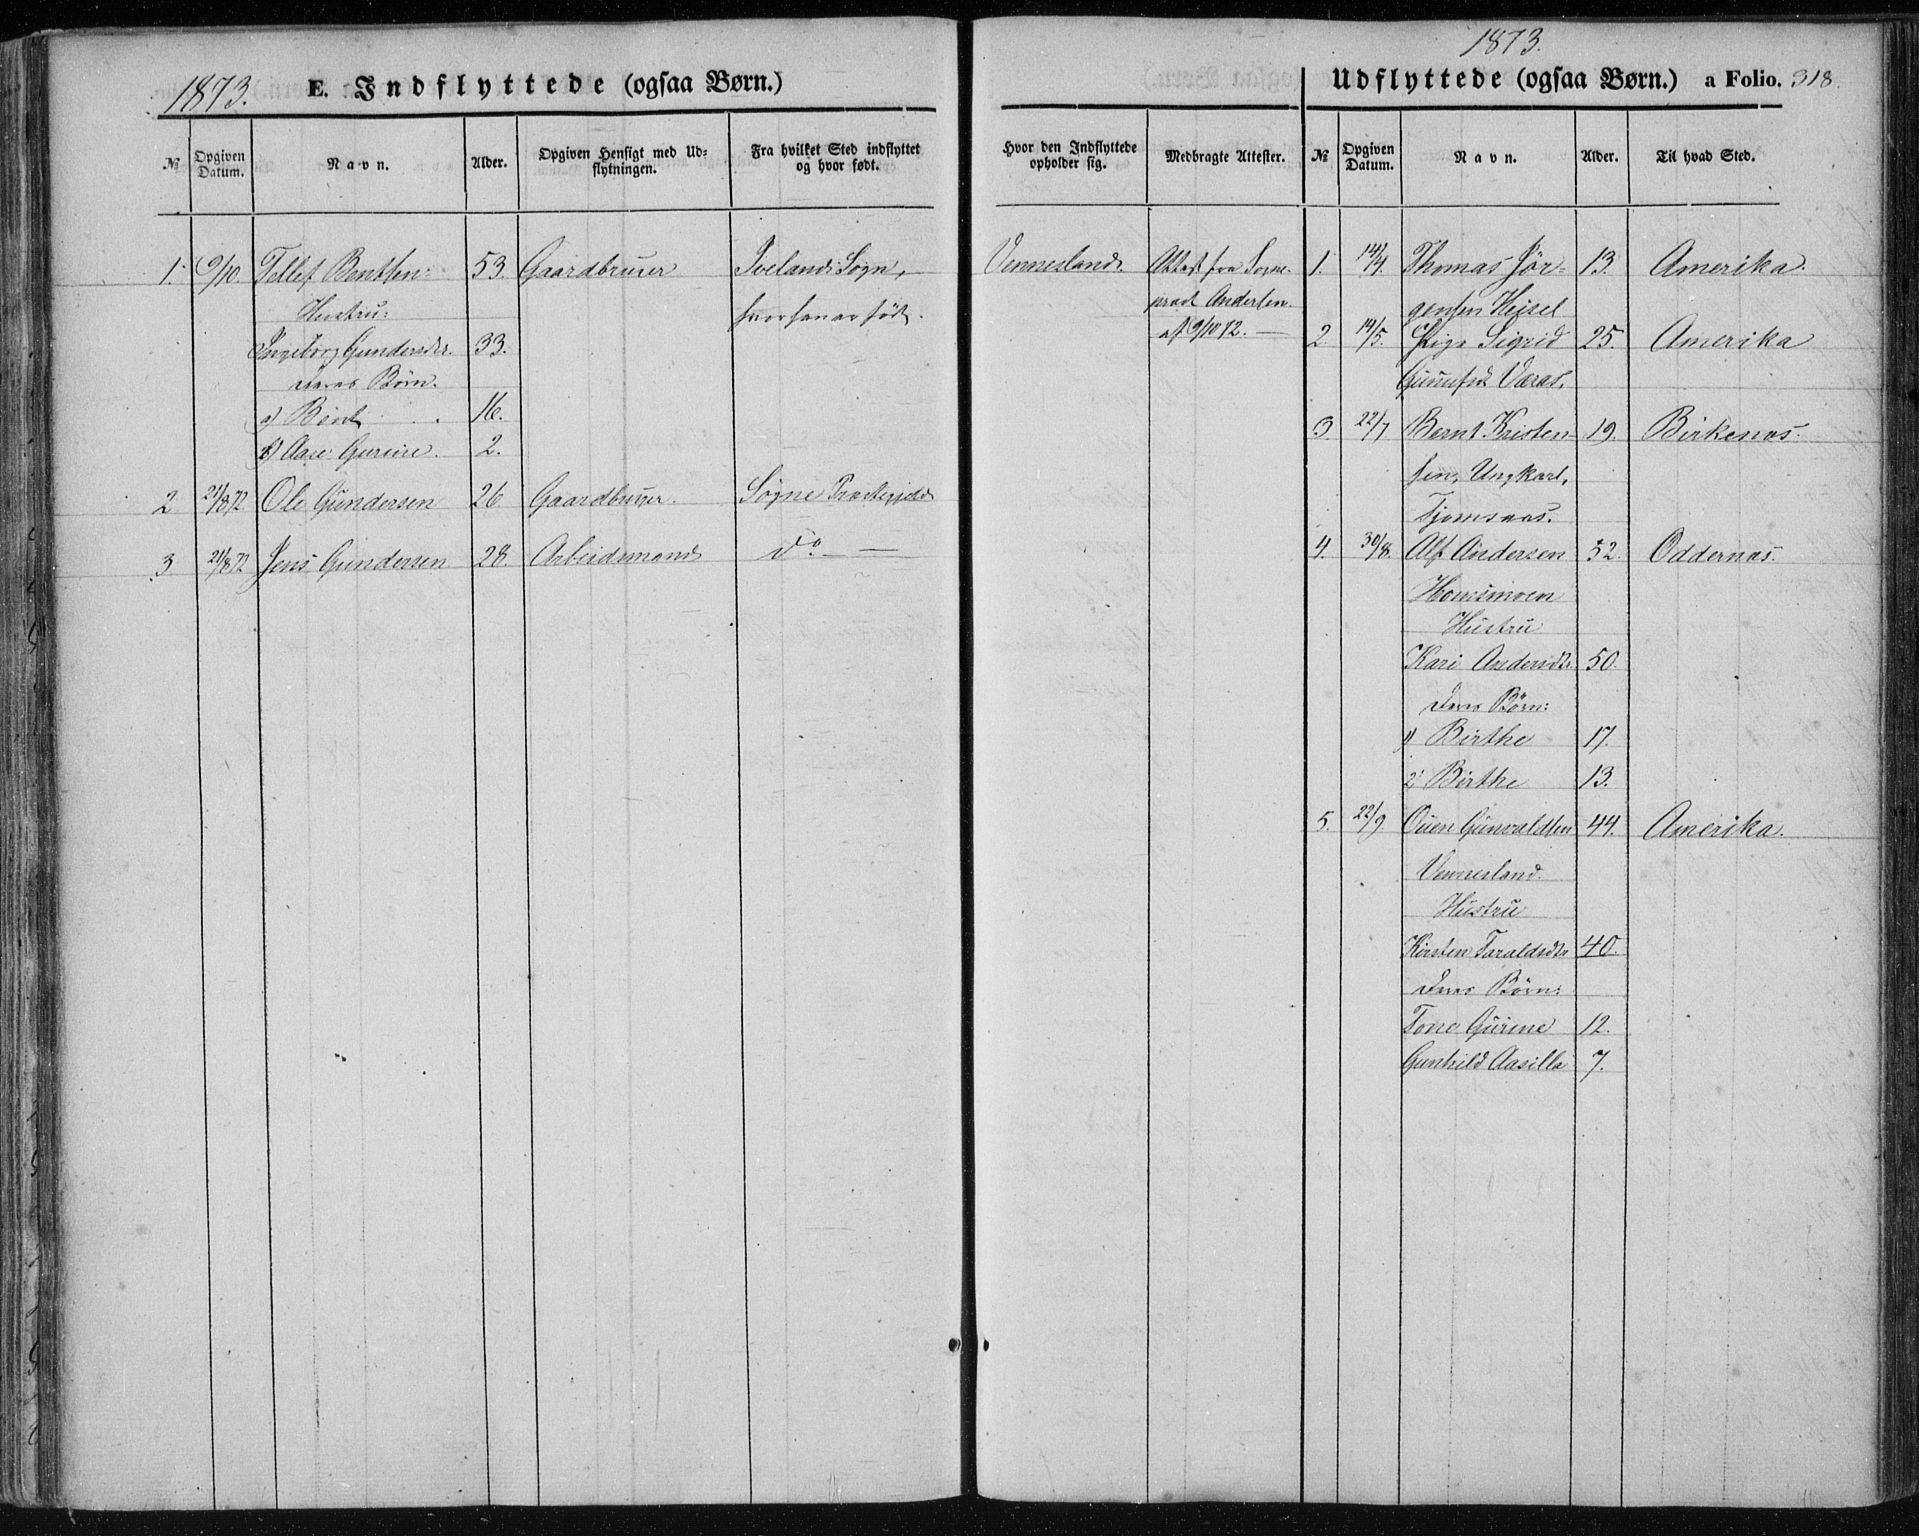 1873.
E. Indflyttede (ogsaa Børn.)
№
Opgiven Datum.
Navn.
Alder.
Opgiven Hensigt med Ud-
flytningen.
Fra hvilket Sted indflyttet
og hvor født.
1. 9/10. Tellef Bentsen: 53. Gaardbruger Ivelands Sogn,
Hustru: hvor han er født.
Ingeborg Gundersdtr. 33.
deres Børn.
a) Bent 16.
b) Aase Gurine. 2.
2. 21/8 72. Ole Gundersen 26 Gaardbruger. Søgne Præstegjeld
3. 21/8 72 Jens Gundersen 28. Arbeidsmand do — —
1873.
Udflyttede (ogsaa Børn.) a Folio. 318.
Hvor den Indflyttede
opholder sig.
Medbragte Attester.
№
Opgiven
Datum.
Navn.
Alder.
Til hvad Sted.
Vennesland. Attest fra Sogne-
præst Andersen
af 9/10 72. —
1. 14/4. Thomas Jör- 13. Amerika.
gensen Heisel
2 14/5. Pige Sigrid 25. Amerika
Gunufsd. Væraas,
3. 22/7 Bernt Kristen- 19. Birkenæs.
sen, Ungkarl,
Tjomsaas.
4. 30/8. Alf Andersen 52. Oddernæs.
Homsmoen
Hustru
Kari Andersdtr 50.
deres Börn:
1) Birthe 17.
2) Birthe 13.
5. 22/9. Ouen Gunvaldsen 44. Amerika.
Vennesland.
Hustru
Kirsten Taraldsdtr 40.
deres Börn:
Tone Gurine 12.
Gunhild Aasille 7.